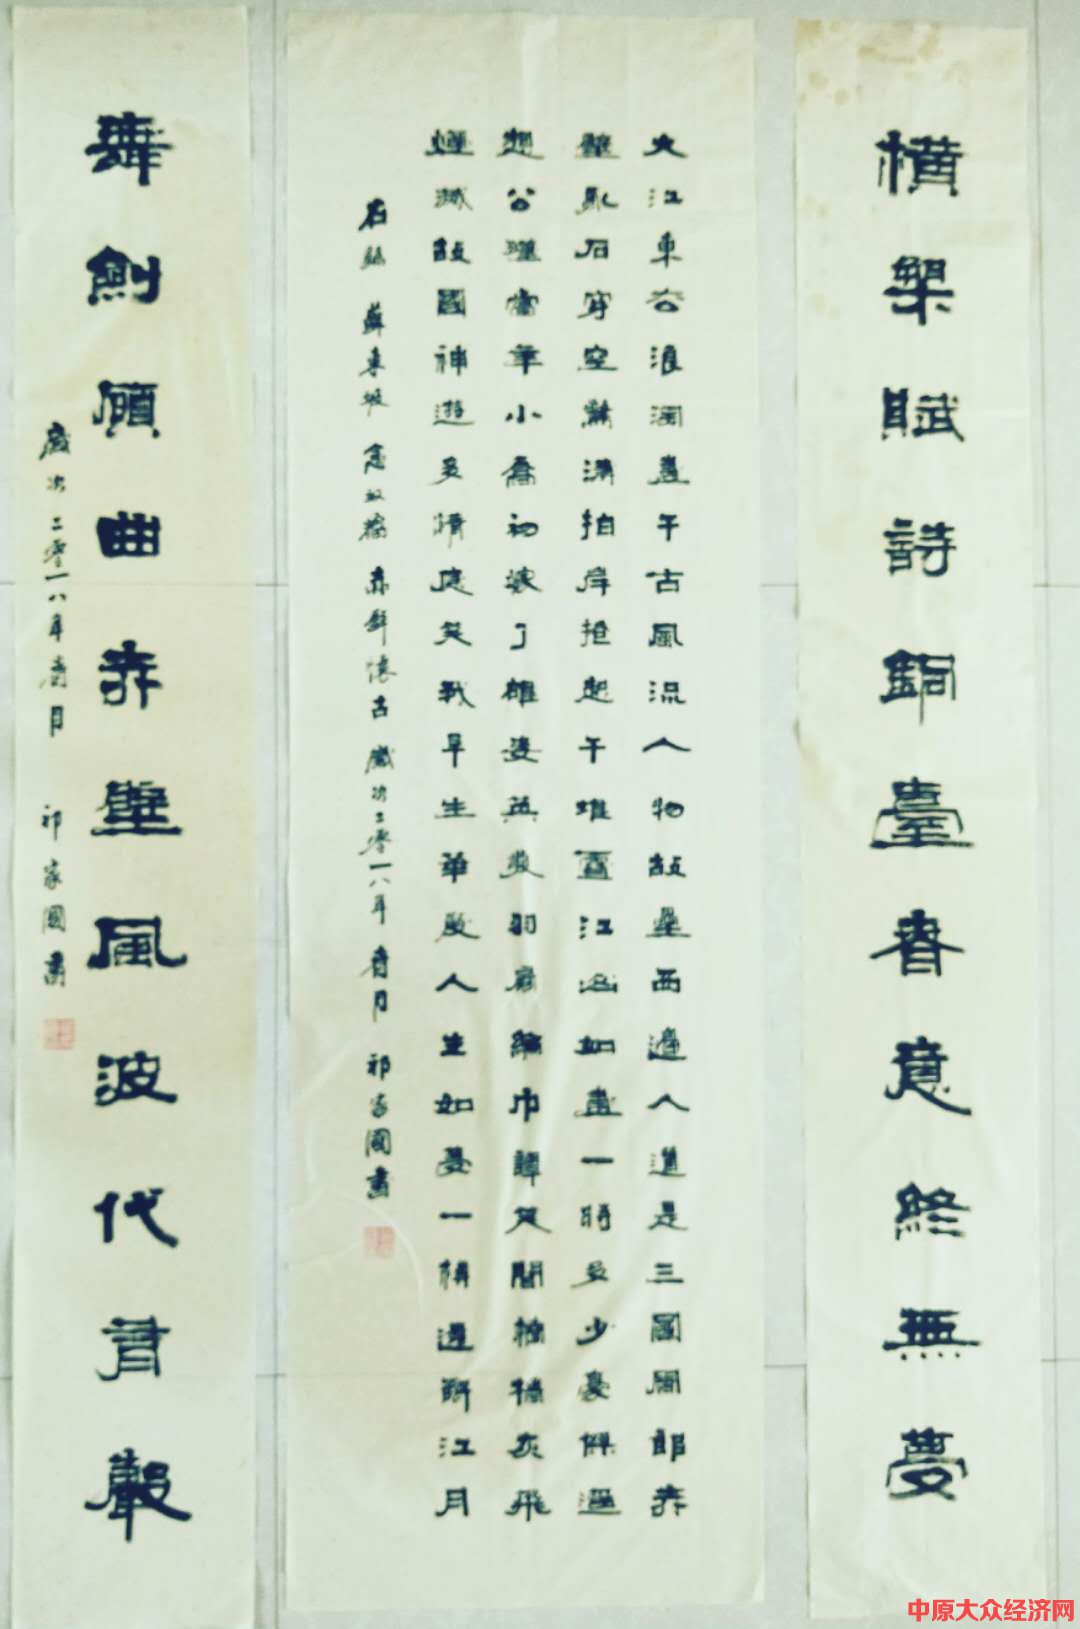 橫槊賦詩銅臺春意終無夢
大江東去浪淘盡千古風流人物故壘西邊人道是三國周郎赤
壁亂石穿空驚濤拍岸捲起千堆雪江山如畫一時多少豪傑遙
想公瑾當年小喬初嫁了雄姿英發羽扇綸巾談笑間檣櫓灰飛
煙滅故國神遊多情應笑我早生華髮人生如夢一樽還酹江月
右錄 蘇東坡 念奴嬌 赤壁懷古 歲次二零一八年春月 祁家國書
舞劍顧曲赤壁風波代有聲
歲次二零一八年春月 祁家國書
中原大众经济网